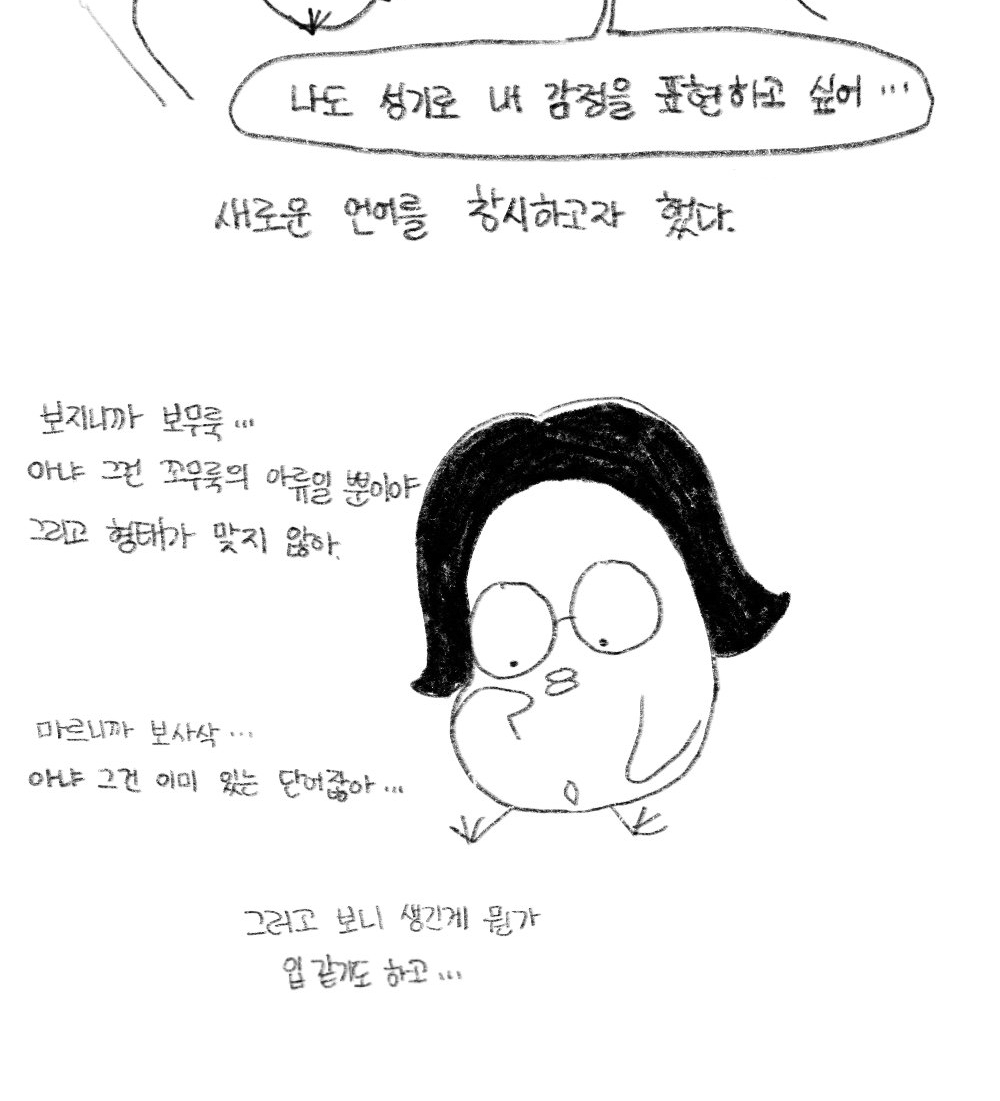 나도 성기로 내 감정을 표현하고 싶어...
새로운 언어를 창시하고자 했다.
보지니까 보무룩...
아냐 그건 꼬무룩의 아류일 뿐이야
그리고 형태가 맞지 않아.
마르니까 보사삭...
아냐 그건 이미 있는 단어잖아...
그러고 보니 생긴게 뭔가
입 같기도 하고...